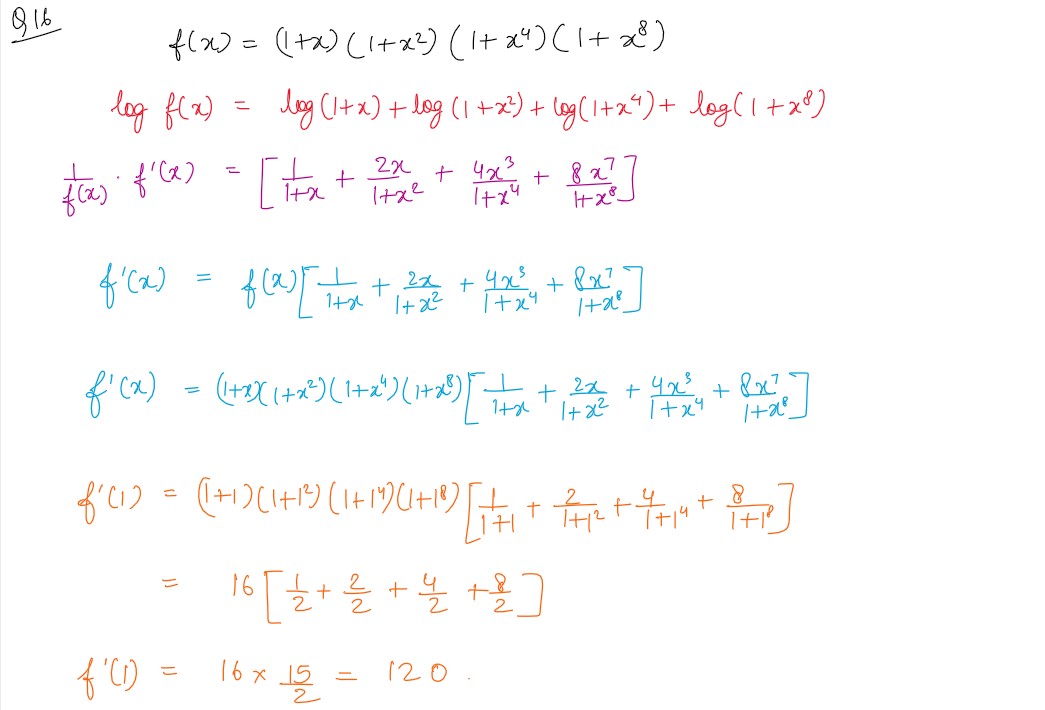 Q16
f(x) = (1+x) (1+x²) (1+x⁴) (1+x⁸)
log f(x) = log(1+x) + log(1+x²) + log(1+x⁴) + log(1+x⁸)
1/f(x) · f'(x) = [1/1+x + 2x/1+x² + 4x³/1+x⁴ + 8x⁷/1+x⁸]
f'(x) = f(x)[1/1+x + 2x/1+x² + 4x³/1+x⁴ + 8x⁷/1+x⁸]
f'(x) = (1+x)(1+x²)(1+x⁴)(1+x⁸)[1/1+x + 2x/1+x² + 4x³/1+x⁴ + 8x⁷/1+x⁸]
f'(1) = (1+1)(1+1²)(1+1⁴)(1+1⁸)[1/1+1 + 2/1+1² + 4/1+1⁴ + 8/1+1⁸]
= 16[1/2 + 2/2 + 4/2 + 8/2]
f'(1) = 16 × 15/2 = 120.